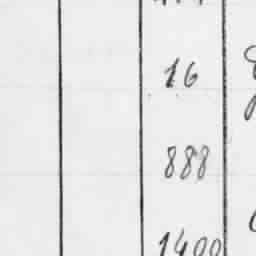 16
888
1400